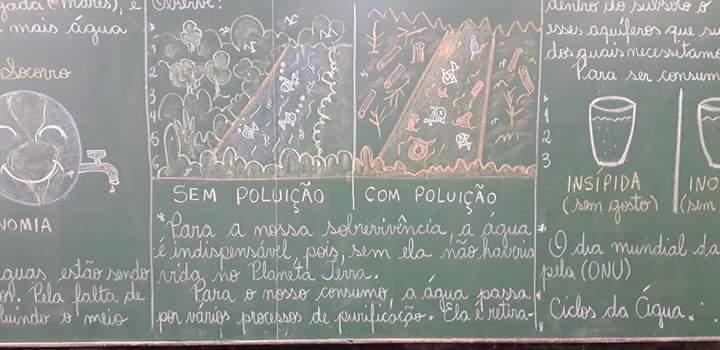 gada (mares), e
mais água
Socorro
NOMIA
aguas estão sendo
Pela falta de
luindo o meio
Observe:
1
2
3
4
5
6
SEM POLUIÇÃO
COM POLUIÇÃO
* Para a nossa sobrevivência, a água
é indispensável, pois, sem ela não haveria
vida no Planeta Terra.
Para o nosso consumo, a água passa
por vários processos de purificação. Ela é retira-
dentro do subsolo o
esses aquíferos que su
dos quais necessitamo
Para ser consum
1
2
3
INSÍPIDA
(sem gosto)
INO
(sem
* O dia mundial da
pela (ONU)
* Ciclos da Água.